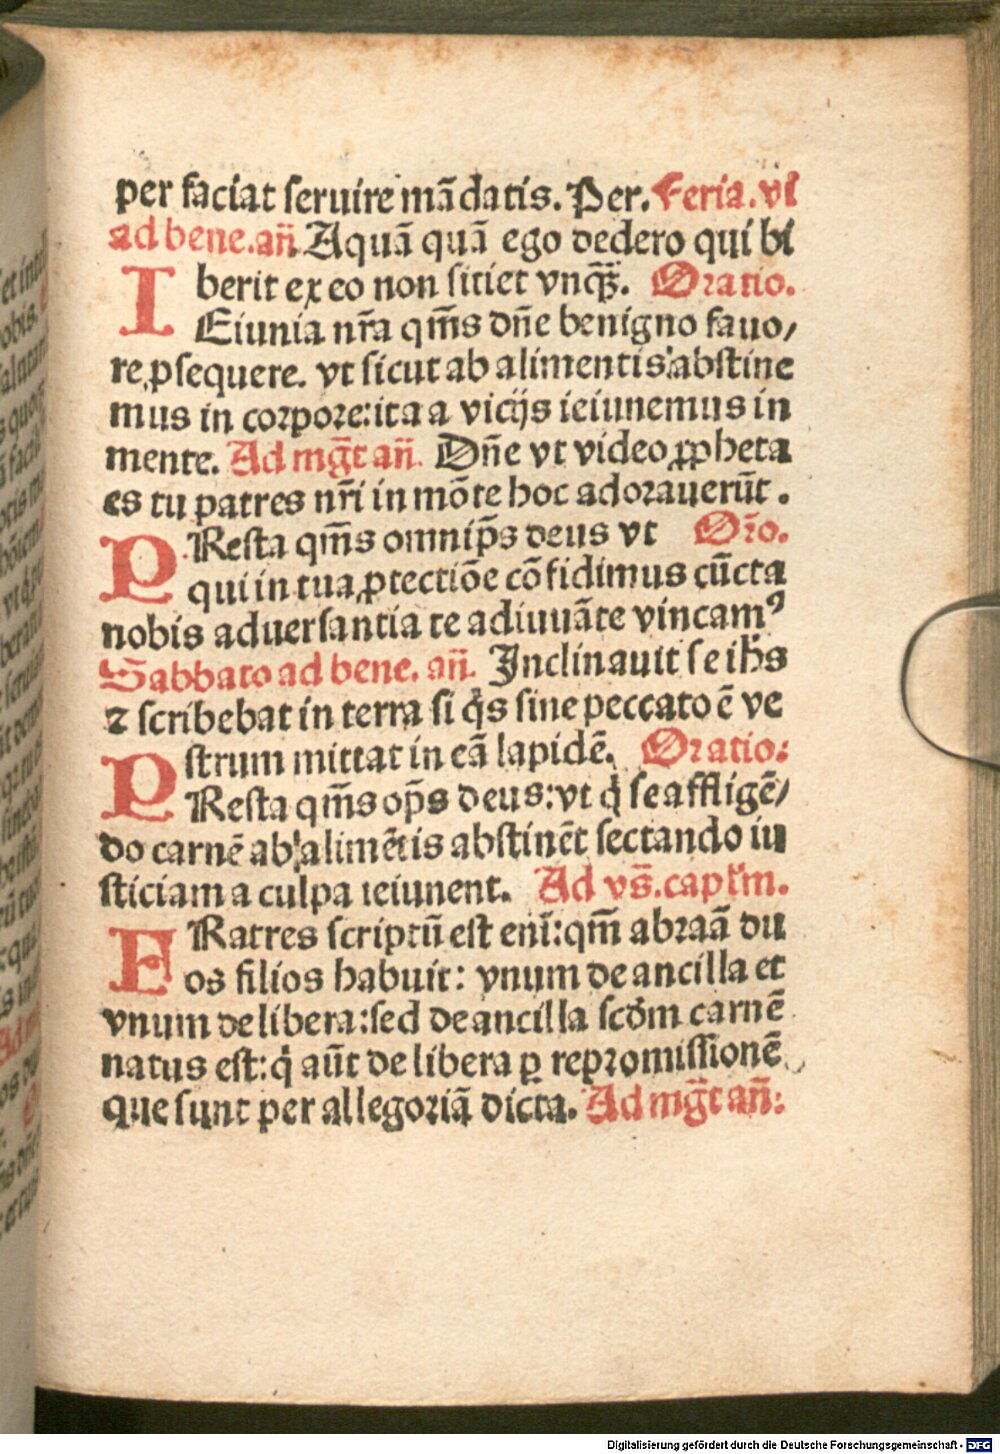 per faciat seruire mādatis. Per. Feria. vi
ad bene. an̄. Aquā quā ego dedero qui bi
berit ex eo non sitiet vnq̄ꝫ. Oratio.
IEiunia nr̄a qm̄s dn̄e benigno fauo/
re ꝓsequere. vt sicut ab alimentis abstine
mus in corpore: ita a vicijs ieiunemus in
mente. Ad mg̅t an̄. Dn̄e vt video ꝓpheta
es tu patres nr̄i in mōte hoc adorauerūt.
PResta qm̄s omnip̄s deus vt Or̄o.
qui in tua ꝓtectiōe cōfidimus cūcta
nobis aduersantia te adiuuāte vincamꝰ
Sabbato ad bene. an̄. Inclinauit se ih̄s
⁊ scribebat in terra si q̇s sine peccato ē ve
strum mittat in eā lapidē. Oratio:
PResta qm̄s op̄s deus: vt q̇ se affligē/
do carnē ab alimētis abstinēt sectando iu
sticiam a culpa ieiunent. Ad vs̄. capl̄m.
FRatres scriptū est eni̅: qm̄ abraā du
os filios habuit: vnum de ancilla et
vnum de libera: sed de ancilla scd̄m carnē
natus est: q̇ aūt de libera ꝑ repromissionē
que sunt per allegoriā dicta. Ad mg̅t an̄:
Digitalisierung gefördert durch die Deutsche Forschungsgemeinschaft - DFG